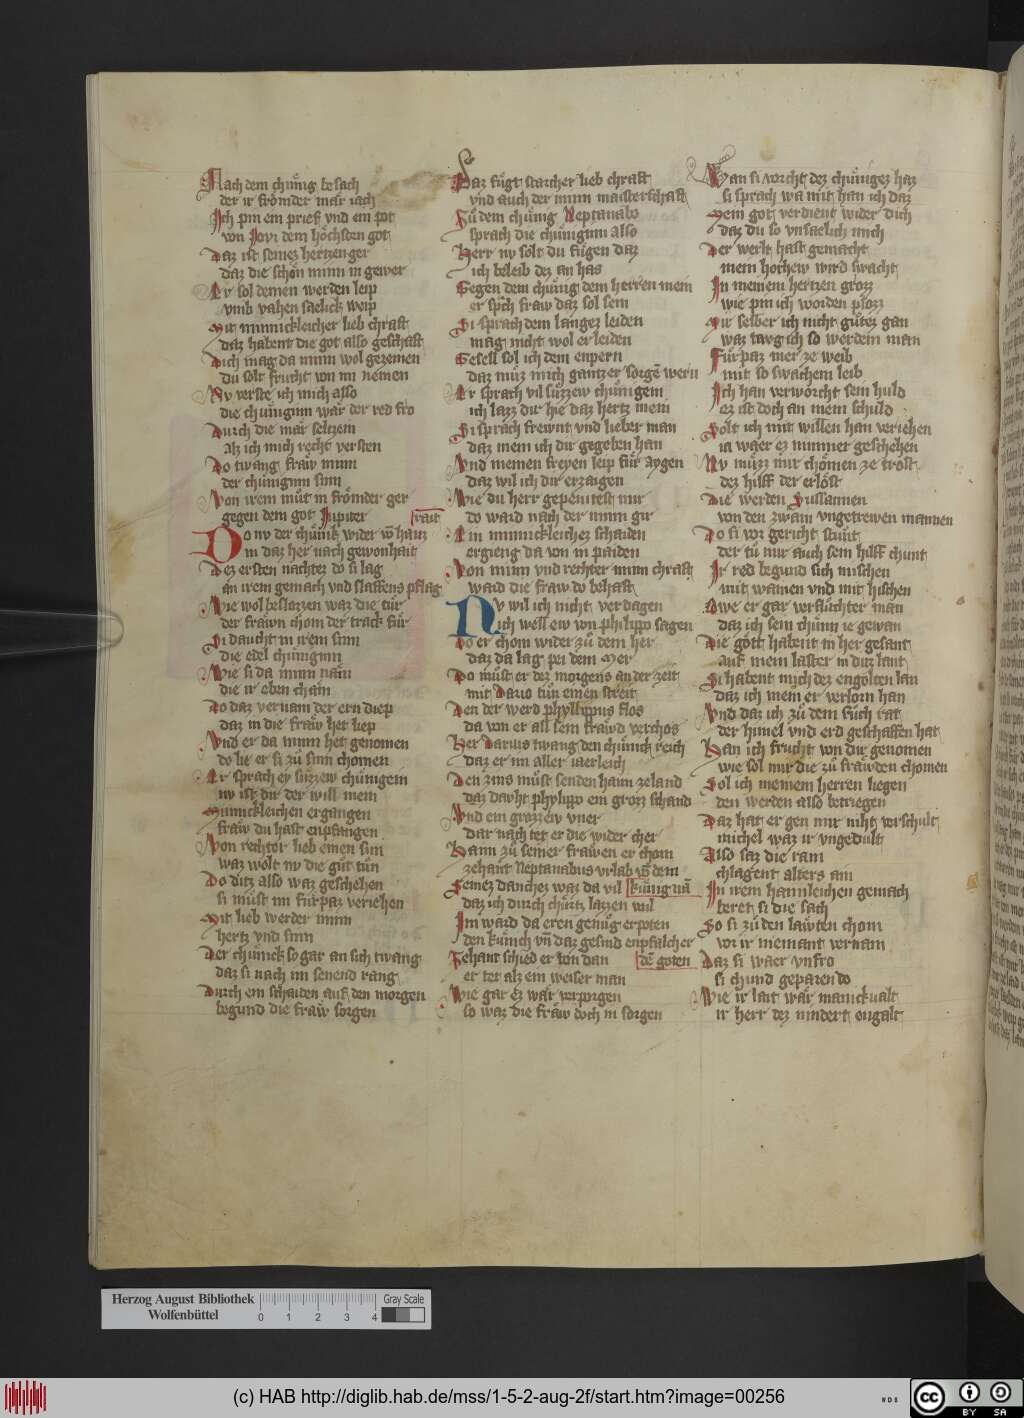 Nach dem chuͤnig besach
der ir froͤmder mær iach
Ich pin ein prief vnd ein pot
von Joui dem hoͤchsten got
Daz ist seinez hertzen ger
daz die schoͤn minn in gewer
Er sol deinen werden leip
vmb vahen saelick weip
Mit minnickleicher lieb chraft
daz habent die got also geschaft
Dich mag da minn wol gezemen
du solt frucht von im nemen
Nv verste ich mich also
die chuͤnginn waͤr der red fro
Durch die maͤr seltzem
alz ich mich recht versten
Do twang fraw minn
der chuͤniginn sinn
Von irem muͤt in froͤmder ger
gegen dem got Jupiter
rait
Do nv der chuͤnik wider vō hauz
in daz her nach gewonhait
Dez ersten nachtez do si lag
an irem gemach vnd slaffens pflag
Wie wol beslozzen waz die tuͤr
der frawn chom der track fuͤr
Si daucht in irem sinn
die edel chuͤniginn
Wie si da minn nam
die ir eben cham
Do daz vernam der ern diep
daz in die fraw het liep
Vnd er da minn het genomen
do lie er si zuͤ sinn chomen
Er sprach ey suͤzzew chuͤnigein
nv ist dir der will mein
Minnickleichen ergangen
fraw du hast enpfangen
Von rechter lieb einen sun
waz wolt nv die guͤt tuͤn
Do ditz also waz geschehen
si muͤst im fuͤrpaz veriehen
Mit lieb werder minn
hertz vnd sinn
Der chuͤnick so gar an sich twang
daz si nach im senend rang
Durch ein schaiden auf den morgen
begund die fraw sorgen
Daz fuͤgt starcher lieb chraft
vnd auch der minn maisterschaft
Zuͤ dem chuͤnig Neptanabo
sprach die chuͤniginn also
Herr nv solt du fuͤgen daz
ich beleib dez an has
Gegen dem chuͤnig dem herren mein
er spͤch fraw daz sol sein
Si sprach dem langez leiden
mag nicht wol er leiden
Gesell sol ich dein enpern
daz muͤz mich gantzer sorgē wern
Er sprach vil suͤzzew chuͤnigein
ich lazz dir hie daz hertz mein
Si sprach frewnt vnd lieber man
daz mein ich dir gegeben han
Vnd meinen freyen leip fuͤr aygen
daz wil ich dir erzaigen
Wie du herr gepeutest mir
do ward nach der minn gir
Ein minnickleichez schaiden
ergieng da von in paiden
Von minn vnd rechter minn chraft
ward die fraw do behaft
Nv wil ich nicht verdagen
ich well ew von philippo sagen
Do er chom wider zuͤ dem her
daz da lag pei dem Mer
Do muͤst er dez morgens an der zeit
mit Dario tuͤn einen streit
Den der werd phyllippus flos
da von er all sein frawd verchos
Her Darius twang den chuͤnick reich
daz er im aller iaerleich
Den zins muͤst senden haim ze land
daz daucht phylippo ein grozz schand
Vnd ein grozzew vner
dar nach tet er die wider cher
Haim zuͤ seiner frawen er chom
zehant Neptanabus vrlab vō dem
Seinez danchez waz da vil
kuͤnig nā
daz ich durch chuͤrtz lazzen wil
Im ward da eren genuͤg erpoten
den kuͤnich vn̄ daz gesind enpfalcher
Zehant schied er von dan
dē goten
er tet alz ein weiser man
Wie gar ez waͤr verporgen
so waz die fraw doch in sorgen
Wan si vorcht dez chuͤnigez haz
si sprach wa mit han ich daz
Mein got verdient wider dich
daz du so vnsaelich mich
Der werlt hast gemacht
mein hochew wird swacht
In meinem hertzen grozz
wie pin ich worden plozz
Mir selber ich nicht guͤtez gan
waz tavg ich so werdem man
Fuͤrpaz mer ze weib
mit so swachem leib
Ich han verworcht sein huld
ez ist doch an mein schuld
Solt ich mit willen han veriehen
ia waer ez nimmer geschehen
Nv muͤzz mir choͤmen ze trost
dez hilff der erlost
Die werden Sussannen
von den zwain vngetrewen mannen
Do si vor gericht stuͤnt
der tuͤ mir auch sein hilff chunt
Ir red begund sich mischen
mit wainen vnd mit hischen
Owe er gar verfluͤchter man
daz ich sein chuͤnn ie gewan
Die goͤtt habent in her gesant
auf mein laster in ditz lant
Si habent mich dez engolten lan
daz ich mein er verlorn han
Vnd daz ich zuͤ dem fuͤch rat
der himel vnd erd geschaffen hat
Han ich frucht von dir genomen
wie sol mir die zuͤ frawden chomen
Sol ich meinem herren liegen
den werden also betriegen
Daz hat er gen mir niht verschult
michel waz ir vngedult
Also saz die rain
chlagent alters ain
In irem haimleichen gemach
beret si die sach
So si zuͤ den lawten chom
vor ir niemant vernam
Daz si waer vnfro
si chund geparen do
Wie ir lait waͤr manickualt
ir herr dez nindert engalt
Herzog August Bibliothek
Wolfenbüttel
0 1 2 3 4
Gray Scale
(c) HAB http://diglib.hab.de/mss/1-5-2-aug-2f/start.htm?image=00256
WDB
cc BY SA